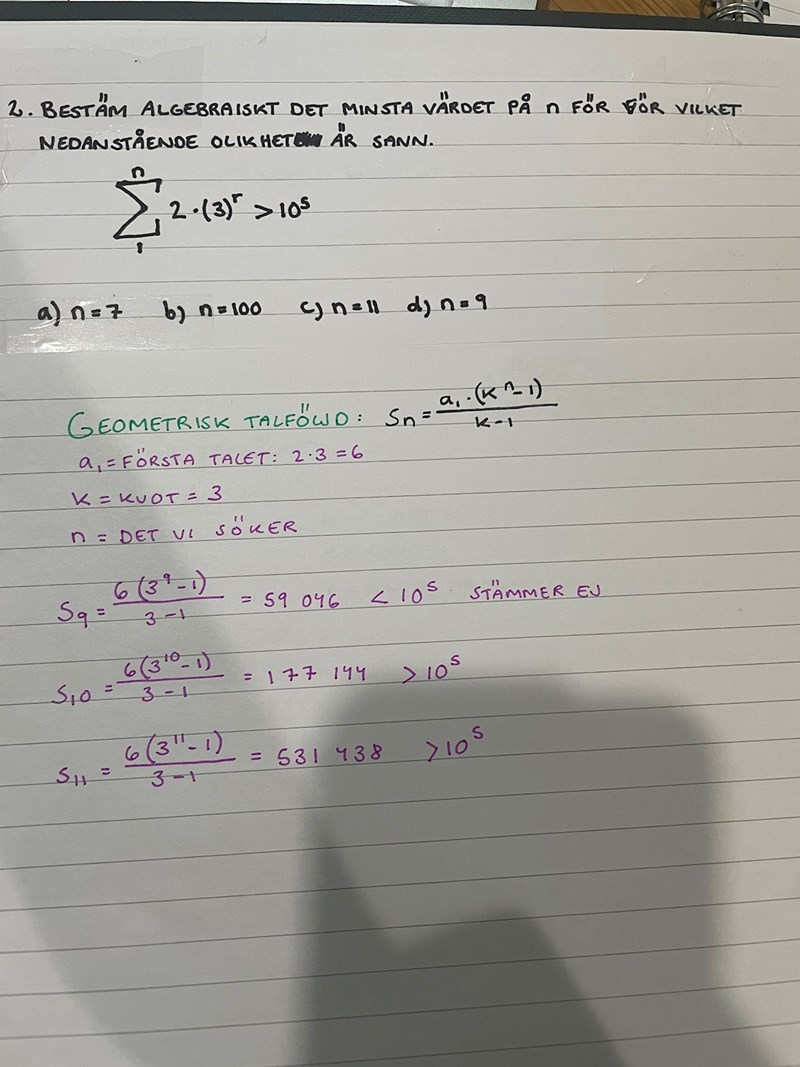 2. BESTÄM ALGEBRAISKT DET MINSTA VÄRDET PÅ n FÖR FÖR VILKET
NEDANSTÅENDE OLIKHET ÄR SANN.
n
∑ 2·(3)^r > 10^5
1
a) n=7 b) n=100 c) n=11 d) n=9
GEOMETRISK TALFÖLJD: Sn = a₁·(K^n-1) / K-1
a₁ = FÖRSTA TALET: 2·3=6
K = KVOT = 3
n = DET VI SÖKER
S9 = 6(3^9-1) / 3-1 = 59 046 < 10^5 STÄMMER EJ
S10 = 6(3^10-1) / 3-1 = 177 144 > 10^5
S11 = 6(3^11-1) / 3-1 = 531 438 > 10^5